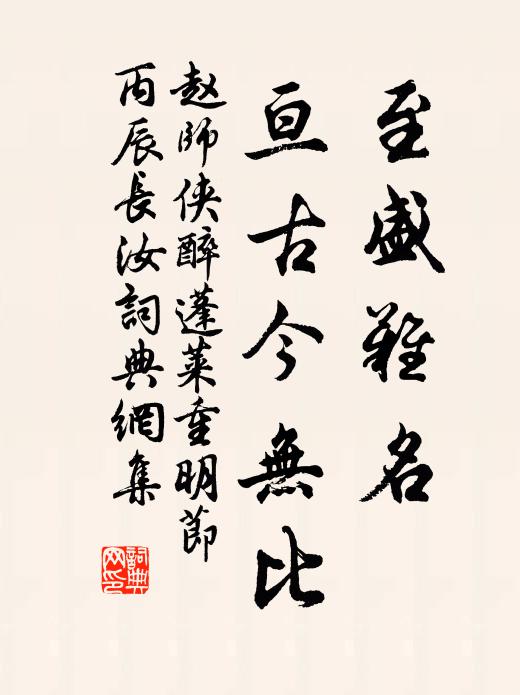 至盛難名
亘古今無比
赵師侠醉蓬莱重明節
丙辰長汝詞典網集
詞典
网印